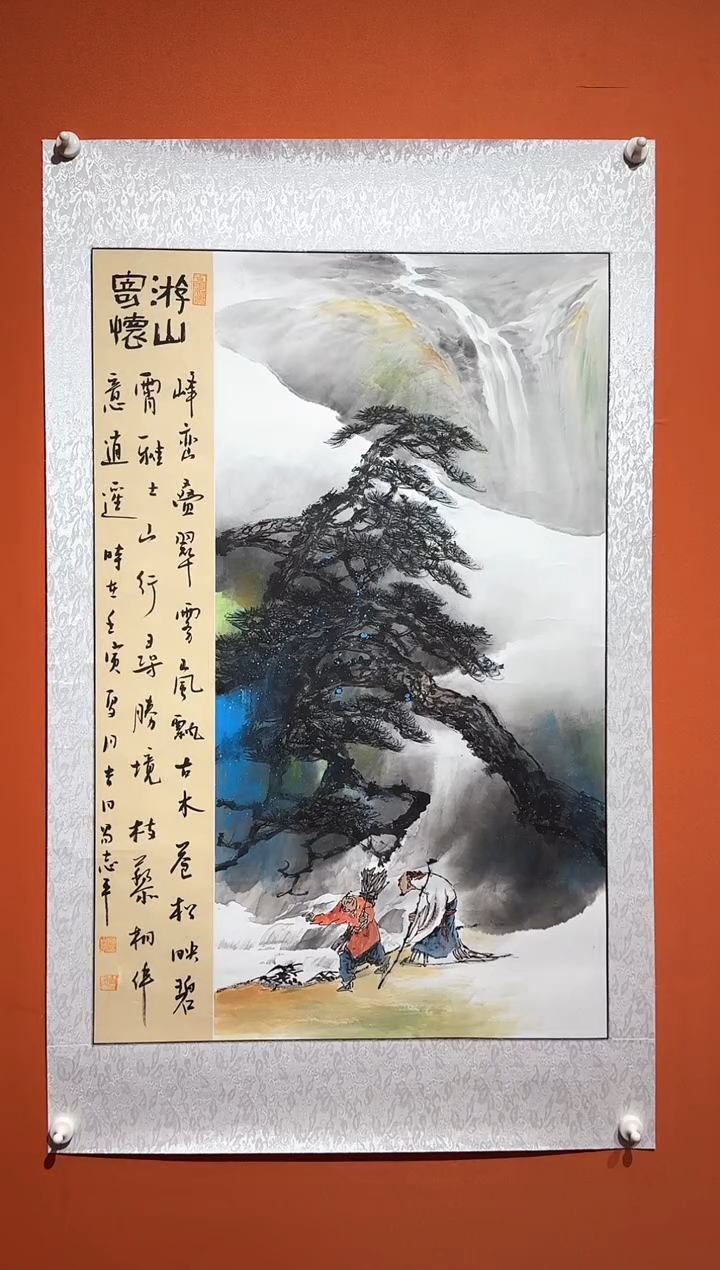 游山
寓懷
峰巒疊翠雾嵐飄古木苍松映碧
霄雅士山行尋勝境杖藜相伴
意逍遥時在壬寅夏月吉日志平